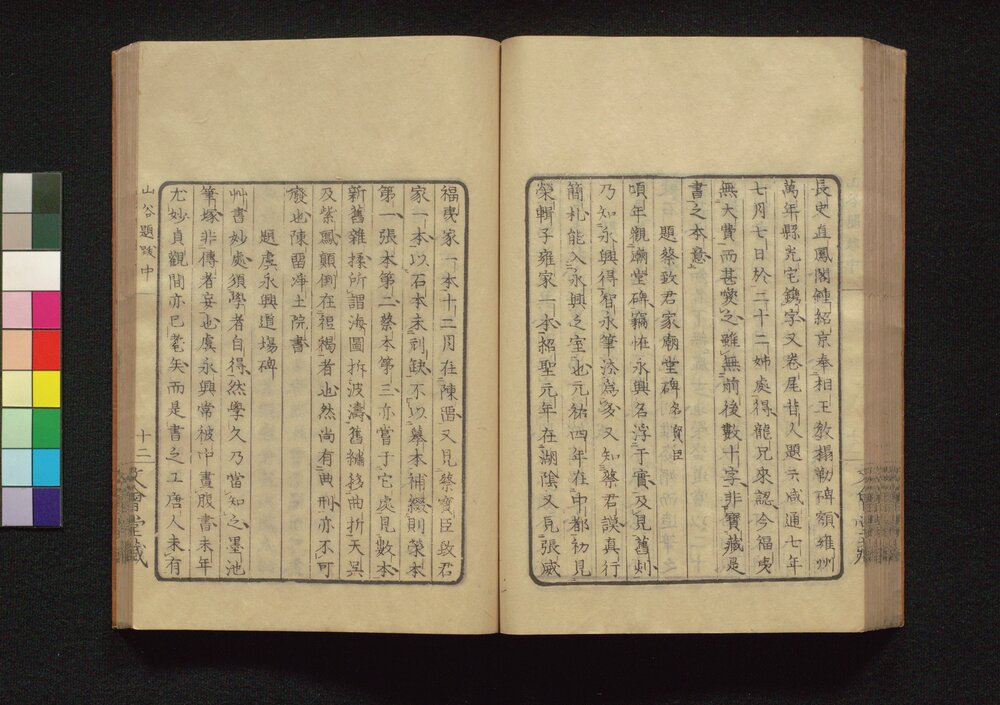 長史直鳳閣鍾紹京奉相王教搨勒碑額雍州
萬年縣光宅鐫字又卷尾昔人題云咸通七年
七月七日於二十二姊處得龍兄來認今福夷
無大費而甚愛之雖無前後數十字非寶藏是
書之本意
題蔡致君家廟堂碑 名寶臣
頃年觀廟堂碑竊怪永興名浮于實及見舊刻
乃知永興得智永筆法為多又知蔡君謨真行
簡札能入永興之室也元祐四年在中都初見
榮輯子雍家一本紹聖元年在湖陰又見張威
福夷家一本十二月在陳留又見蔡寶臣致君
家一本以石本未刓缺不以摹本補綴則榮本
第一張本第二蔡本第三亦嘗于它處見數本
新舊雜揉所謂海圖拆波濤舊繡移曲折天吳
及紫鳳顛倒在裋褐者也然尚有典刑亦不可
廢也陳留淨土院書
題虞永興道場碑
艸書妙處須學者自得然學久乃當知之墨池
筆塚非傳者妄也虞永興常被中畫腹書末年
尤妙貞觀間亦已耄矣而是書之工唐人未有
山谷題跋中
十二
文會堂藏
文會堂藏